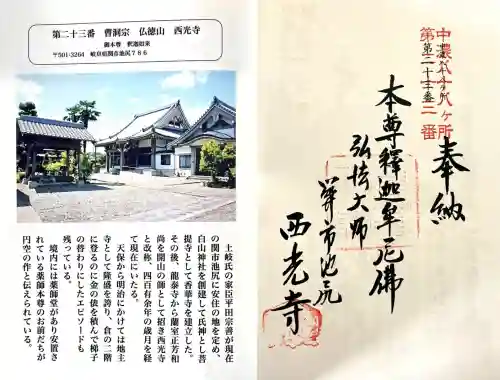 第二十三番 曹洞宗 仏徳山 西光寺
御本尊 釈迦如来
〒501-3264 岐阜県関市池尻786
土岐氏の家臣平田宗善が現在
の関市池尻に安住の地を定め、
白山神社を創建して氏神とし菩
提寺として香華寺を建立した。
その後、龍泰寺から蘭室正芳和
尚を開山の師として招き西光寺
と改称、四百有余年の歳月を経
て現在にいたる。
天保から明治にかけては地主
寺として隆盛を誇り、倉の二階
に登るのに金の俵を積んで梯子
の替わりにしたエピソードも
残っている。
境内には薬師堂があり安置さ
れている薬師本尊のお前だちが
円空の作と伝えられている。
奉納
中濃八十八ヶ所
第二十三番
本尊釋迦牟尼佛
弘法大師
関市池尻
西光寺